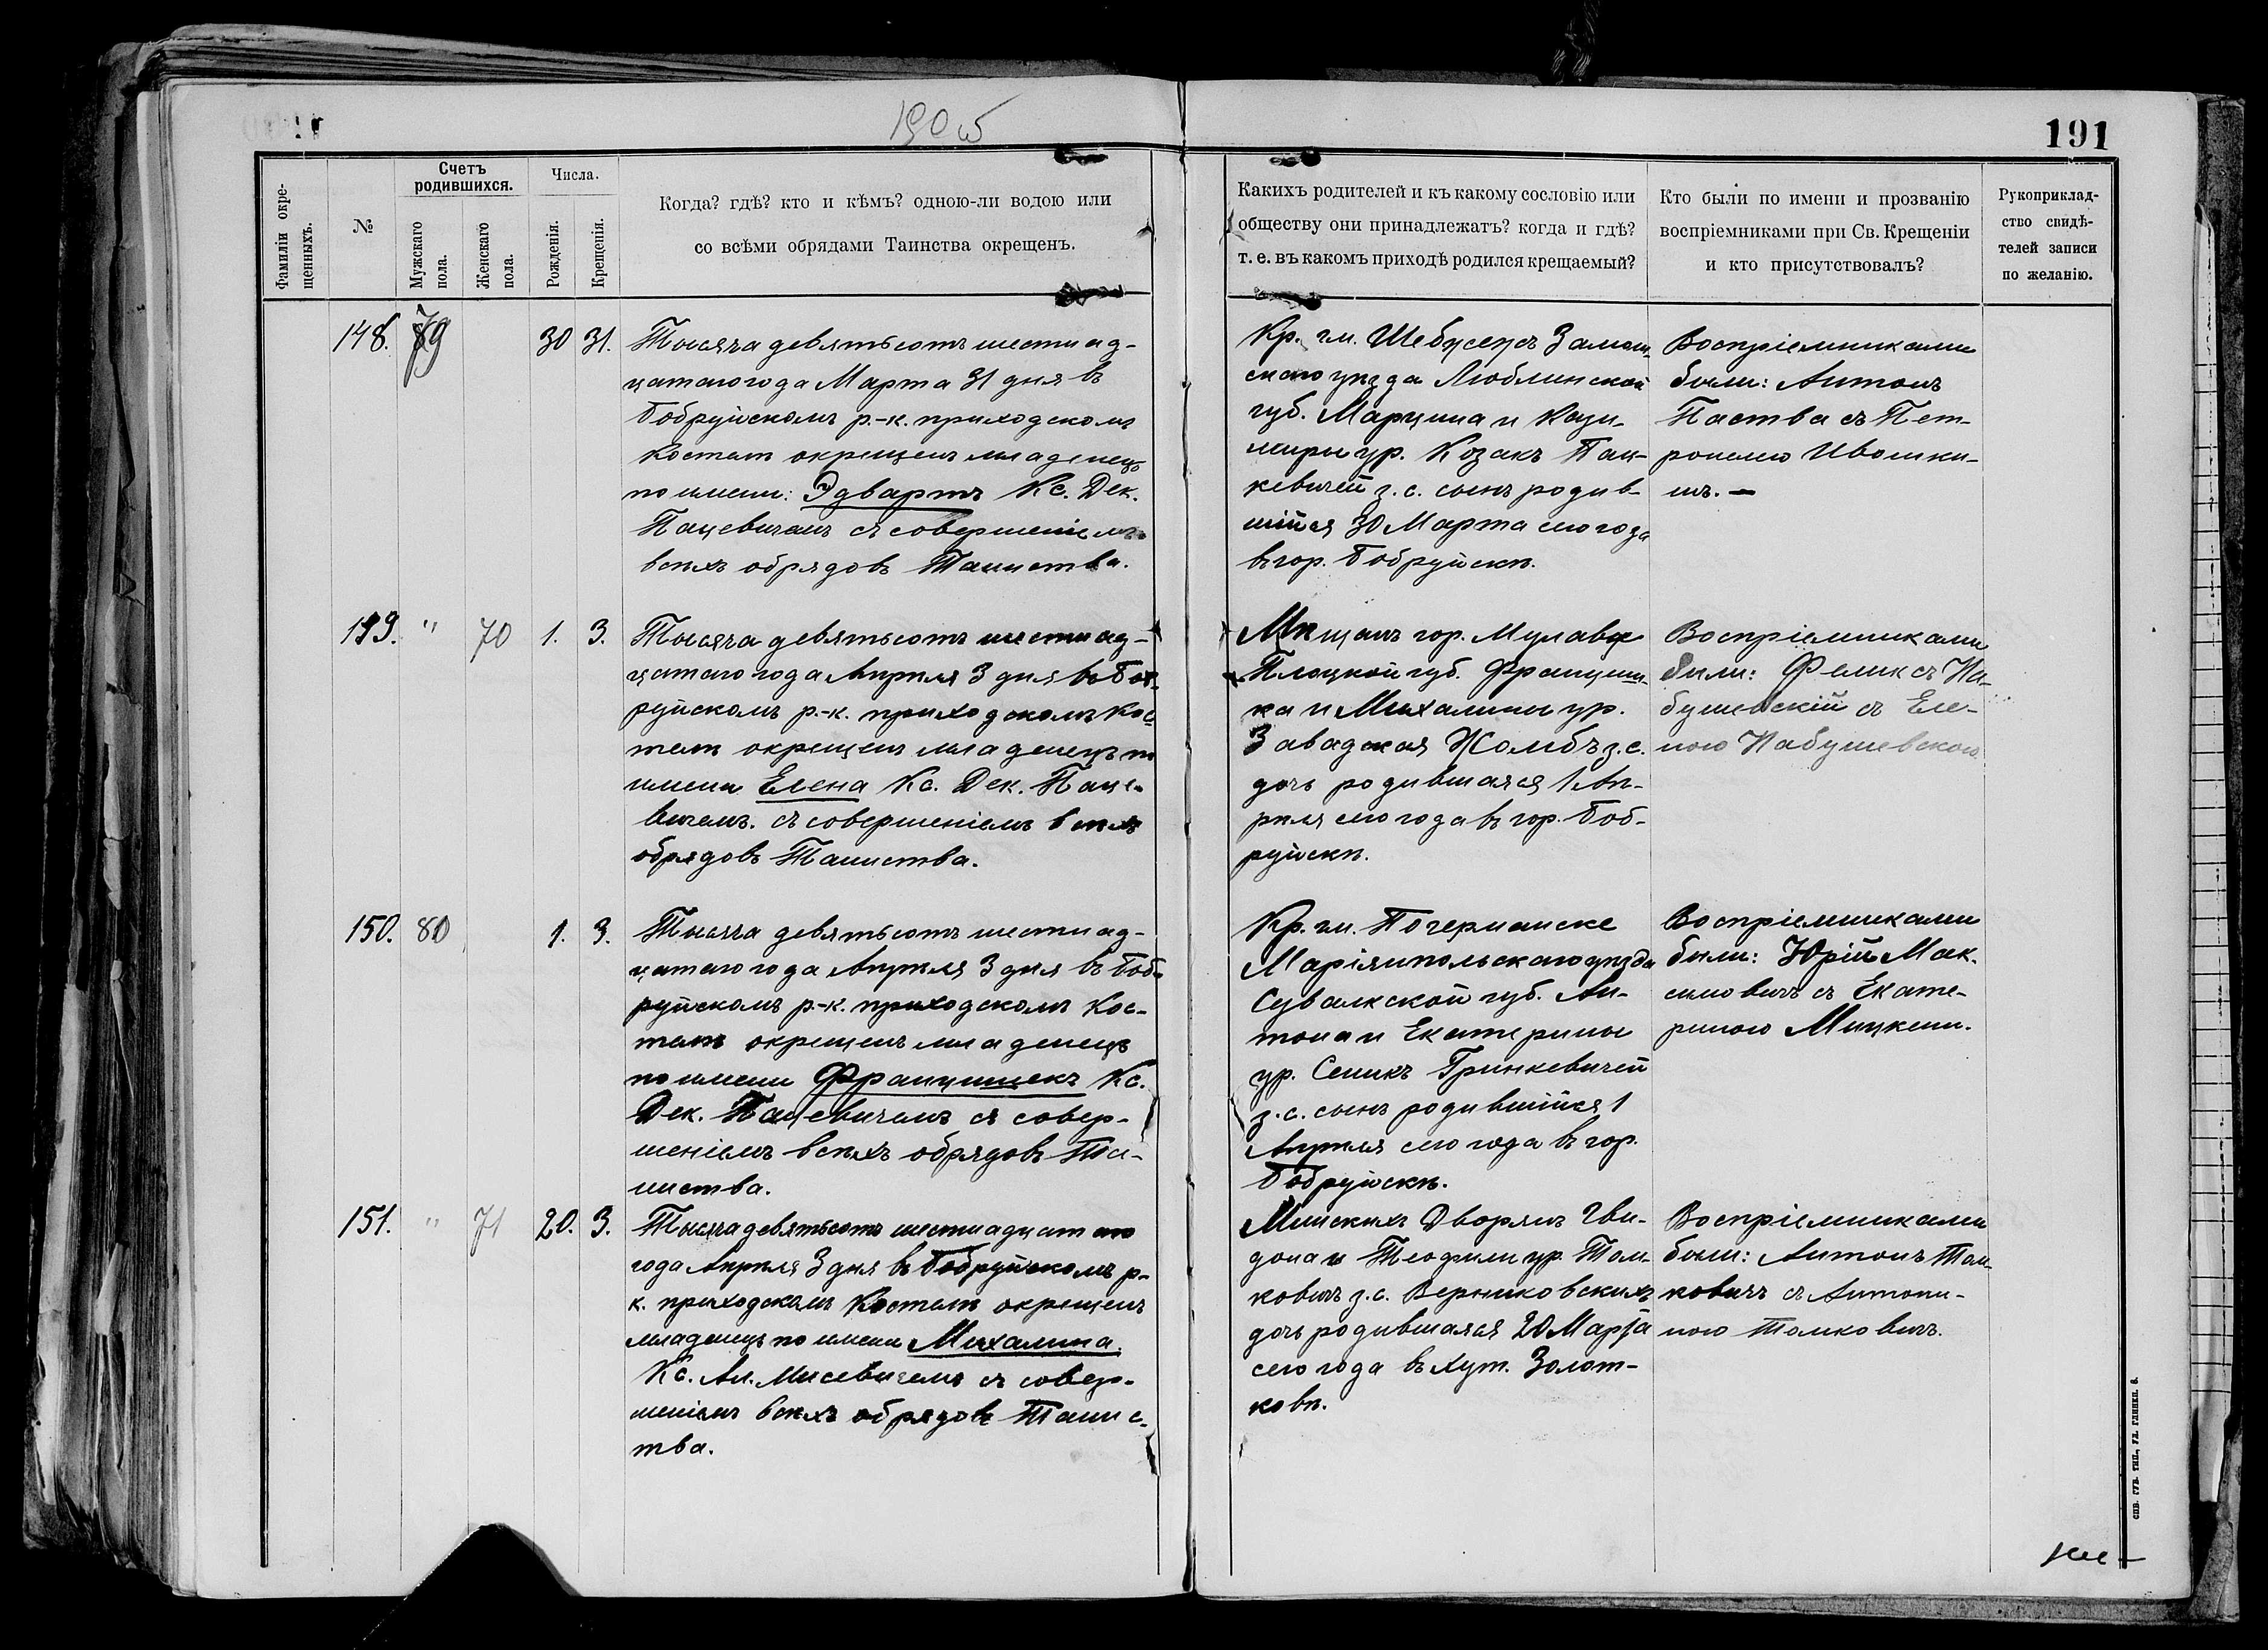 190
191
Фамиліи окре-
щенныхъ.
№
Счетъ
родившихся.
Мужскаго
пола.
Женскаго
пола.
Числа.
Рожденія.
Крещенія.
Когда? гдѣ? кто и кѣмъ? одною-ли водою или
со всѣми обрядами Таинства окрещенъ.
Какихъ родителей и къ какому сословію или
обществу они принадлежатъ? когда и гдѣ?
т. е. въ какомъ приходѣ родился крещаемый?
Кто были по имени и прозванію
воспріемниками при Св. Крещеніи
и кто присутствовалъ?
Рукоприклад-
ство свидѣ-
телей записи
по желанію.
148.
79
30
31.
Тысяча девятьсотъ шестнад-
цатаго года Марта 31 дня въ
Бобруйскомъ р.-к. приходскомъ
Костелѣ окрещенъ младенецъ
по имени: Эдвартъ Кс. Дек.
Пацевичемъ съ совершеніемъ
всѣхъ обрядовъ Таинства.
Кр. гм. Шебусусъ Замой-
скаго уѣзда Люблинской
губ. Марцина и Кази-
миры ур. Козакъ Пан-
кевичей з. с. сынъ родив-
шійся 30 Марта сего года
въ гор. Бобруйскѣ.
Воспріемниками
были: Антонъ
Паства съ Пет-
ронелею Ивошки-
шъ. —
149.
"
70
1.
3.
Тысяча девятьсотъ шестнад-
цатаго года Апрѣля 3 дня въ Боб-
руйскомъ р.-к. приходскомъ Кос-
телѣ окрещенъ младенецъ по
имени Елена Кс. Дек. Паце-
вичемъ. съ совершеніемъ всѣхъ
обрядовъ Таинства.
Мѣщанъ гор. Мулавы
Плоцкой губ. Франциш-
ка и Михалины ур.
Завадская Жомбъ з. с.
дочь родившаяся 1 Ап-
рѣля сего года въ гор. Боб-
руйскѣ.
Воспріемниками
были: Феликсъ На-
бушевскій съ Еле-
ною Набушевскою.
150.
80
1.
3.
Тысяча девятьсотъ шестнад-
цатаго года Апрѣля 3 дня въ Боб-
руйскомъ р.-к. приходскомъ Кос-
телѣ окрещенъ младенецъ
по имени Францишекъ Кс.
Дек. Пацевичемъ съ совер-
шеніемъ всѣхъ обрядовъ Та-
инства.
Кр. гм. Погерманске
Маріямпольскаго уѣзда
Сувалкской губ. Ан-
тона и Екатерины
ур. Сеникъ Гринкевичей
з. с. сынъ родившійся 1
Апрѣля сего года въ гор.
Бобруйскѣ.
Воспріемниками
были: Юрій Мак-
симовичъ съ Екате-
риною Мицкели.
151.
"
71
20.
3.
Тысяча девятьсотъ шестнадцатаго
года Апрѣля 3 дня въ Бобруйскомъ р.-
к. приходскомъ Костелѣ окрещенъ
младенецъ по имени Михалина.
Кс. Ал. Мисевичемъ съ совер-
шеніемъ всѣхъ обрядовъ Таинс-
тва.
Минскихъ Дворянъ Гви-
дона и Теофили ур. Том-
ковичъ з. с. Верниковскихъ
дочь родившаяся 20 Марта
сего года въ хут. Золот-
ковѣ.
Воспріемниками
были: Антонъ Том-
ковичъ съ Антони-
ною Томковичъ.